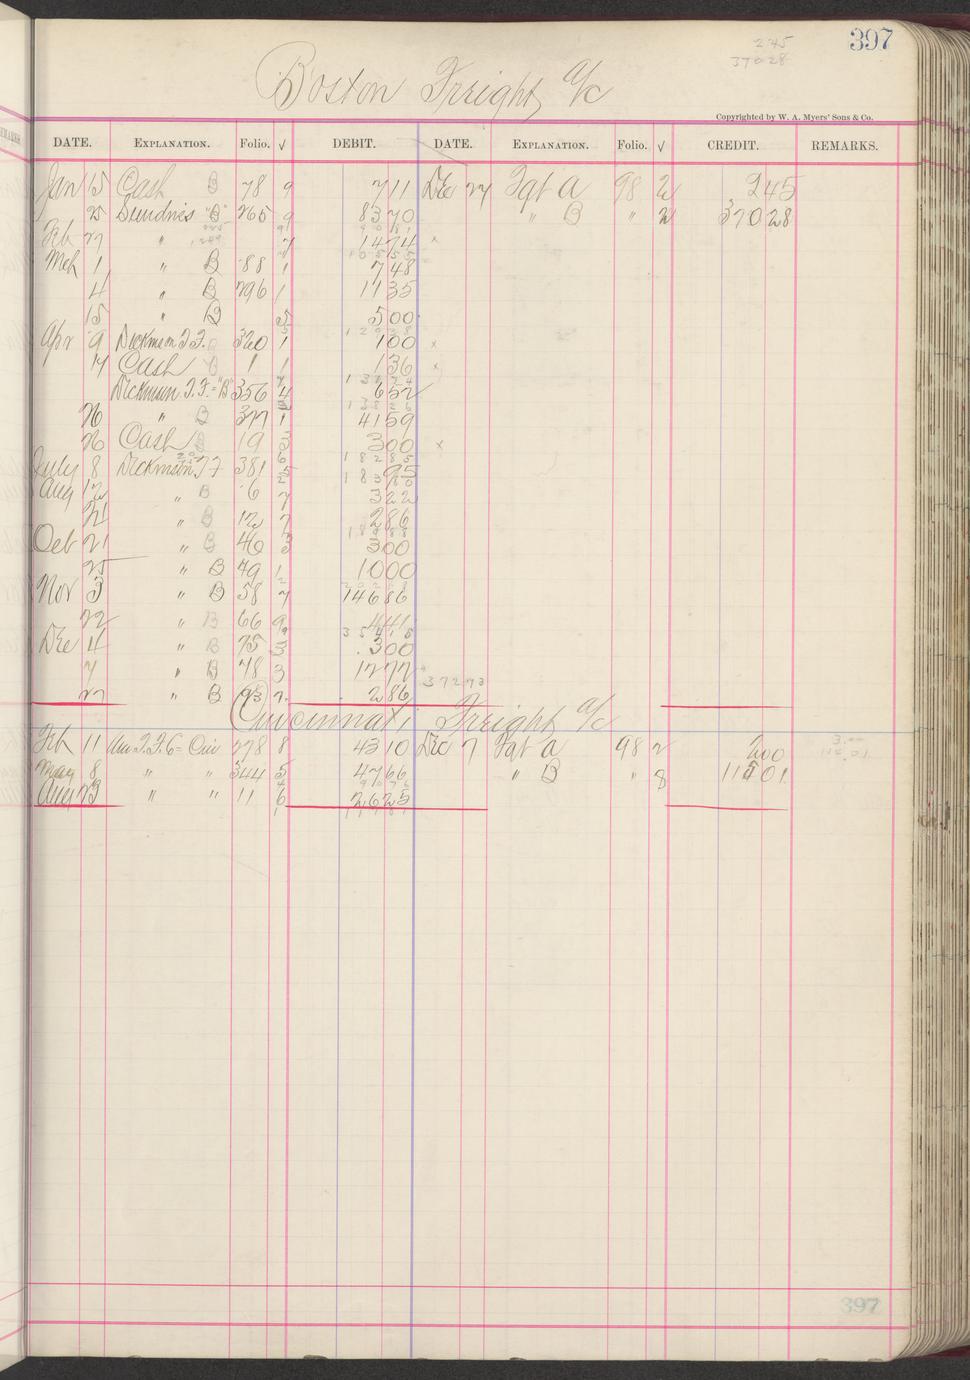 397
2 45
370 28
Boston Freight a/c
Copyrighted by W. A. Myers' Sons & Co.
DATE. EXPLANATION. Folio. √ DEBIT. DATE. EXPLANATION. Folio. √ CREDIT. REMARKS.
Jan 15 Cash B 78 9 7 11 Dec 27 Fgt A 98 2 2 45
25 Sundries "B" 265 9 83 70 " B " 2 370 28
Feb 27 " 7 14 74 x
Mch 1 " B 88 1 7 48
4 " B 296 1 11 35
15 " B 5 5 00
Apr 9 Dickmson F.F. 320 1 1 00 x
14 Cash B 1 1 1 36 x
Dickmson F.F. "B" 356 4 6 52
26 " B 377 1 41 59
26 Cash B 19 3 3 00 x
July 8 Dickmson F F 381 5 95
Aug 12 " B 6 7 3 22
21 " B 12 7 2 86
Oct 21 " B 46 3 3 00
25 " B 49 1 10 00
Nov 3 " B 58 7 146 86
22 " B 66 9 4 41
Dec 4 " B 75 3 3 00
7 " B 78 3 12 77
27 " B 93 7 2 86
372 73
Cincinnati Freight a/c
Feb 11 Am F.F.Co Cin 278 8 43 10 Dec 7 Fgt A 98 2 2 00
May 8 " " 344 5 47 66 " B " 8 115 01
Aug 23 " " 11 6 26 25
397